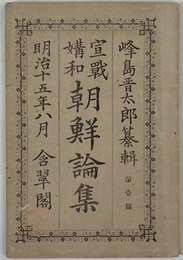 峰島晋太郎纂輯
第壹編
宣戰
媾和
朝鮮論集
明治十五年八月　含翠閣